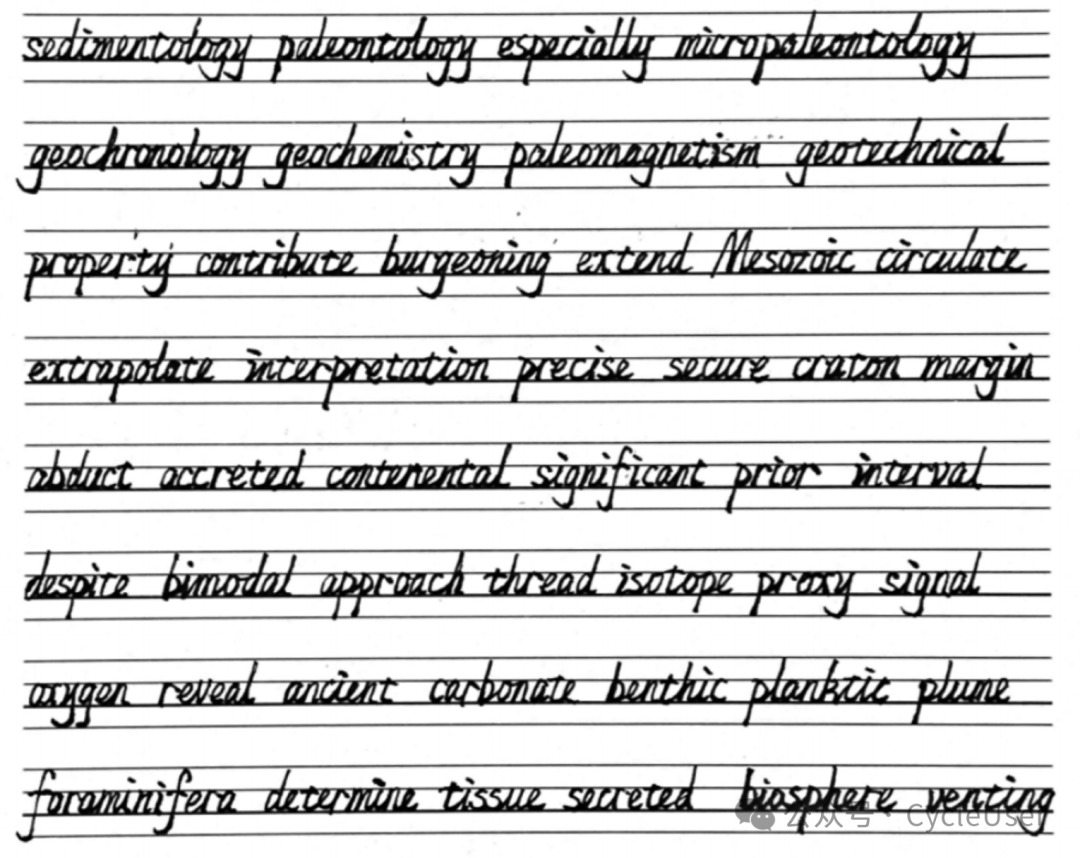 sedimentology paleontology especially micropaleontology
geochronology geochemistry paleomagnetism geotechnical
property contribute burgeoning extend Mesozoic circulate
extrapolate interpretation precise secure craton margin
abduct accreted contenental significant prior interval
despite bimodal approach thread isotope proxy signal
oxygen reveal ancient carbonate benthic planktic plume
foraminifera determine tissue secreted biosphere venting
公众号 · CycleUser